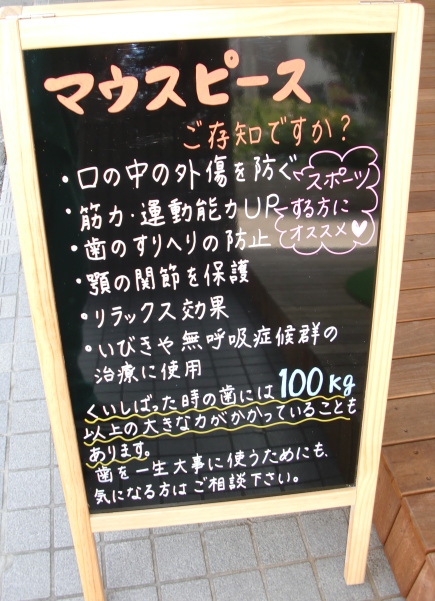 マウスピース
ご存知ですか?
・口の中の外傷を防ぐ
・筋力・運動能力UP
スポーツ
する方に
オススメ♥
・歯のすりへりの防止
・顎の関節を保護
・リラックス効果
・いびきや無呼吸症候群の
治療に使用
くいしばった時の歯には100kg
以上の大きな力がかかっていることも
あります。
歯を一生大事に使うためにも、
気になる方はご相談下さい。